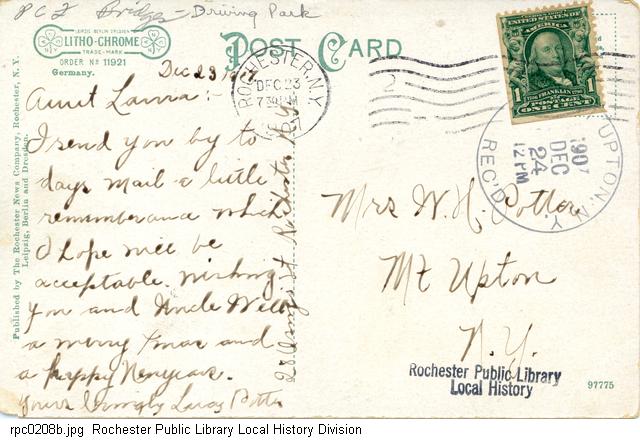 PCF Bridges - Driving Park
LEIPZIG BERLIN DRESDEN
LITHO-CHROME
TRADE-MARK
ORDER No 11921
Germany.
POST CARD
Dec 23 1907
ROCHESTER, N.Y.
DEC 23
7 30 PM
UNITED STATES OF AMERICA
1 FRANKLIN 1
POSTAGE
ONE CENT
UPTON, N.Y.
1907
DEC
24
12 PM
REC'D
Aunt Laura:-
I send you by to
days mail a little
rememberance which
I hope will be
acceptable. wishing
you and Uncle Will
a merry Xmas and
a happy Newyear.
Yours Lovingly Lucy Potter
St Rochester N.Y.
Mrs W. H. Potter
Mt Upton
N.Y.
Published by The Rochester News Company, Rochester, N. Y.
Leipzig, Berlin and Dresden.
Rochester Public Library
Local History
97775
rpc0208b.jpg Rochester Public Library Local History Division